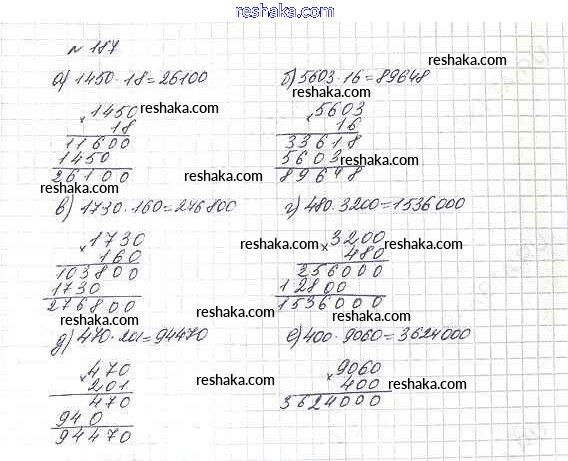 www.reshaka.com
№ 187
а) 1450·18=26100
× 1450 reshaka.com
18
11600
1450
26100
reshaka.com
reshaka.com
б) 5603·16=89648
reshaka.com
× 5603
16
33618
5603 reshaka.com
89648
в) 1730·160=276800
× 1730
160
103800
1730
276800
reshaka.com
г) 480·3200=1536000
reshaka.com × 3200 reshaka.com
480
256000
12800
1536000
reshaka.com
д) 470·201=94470
× 470
201 reshaka.com
470
940
94470
е) 400·9060=3624000
× 9060
400 reshaka.com
3624000